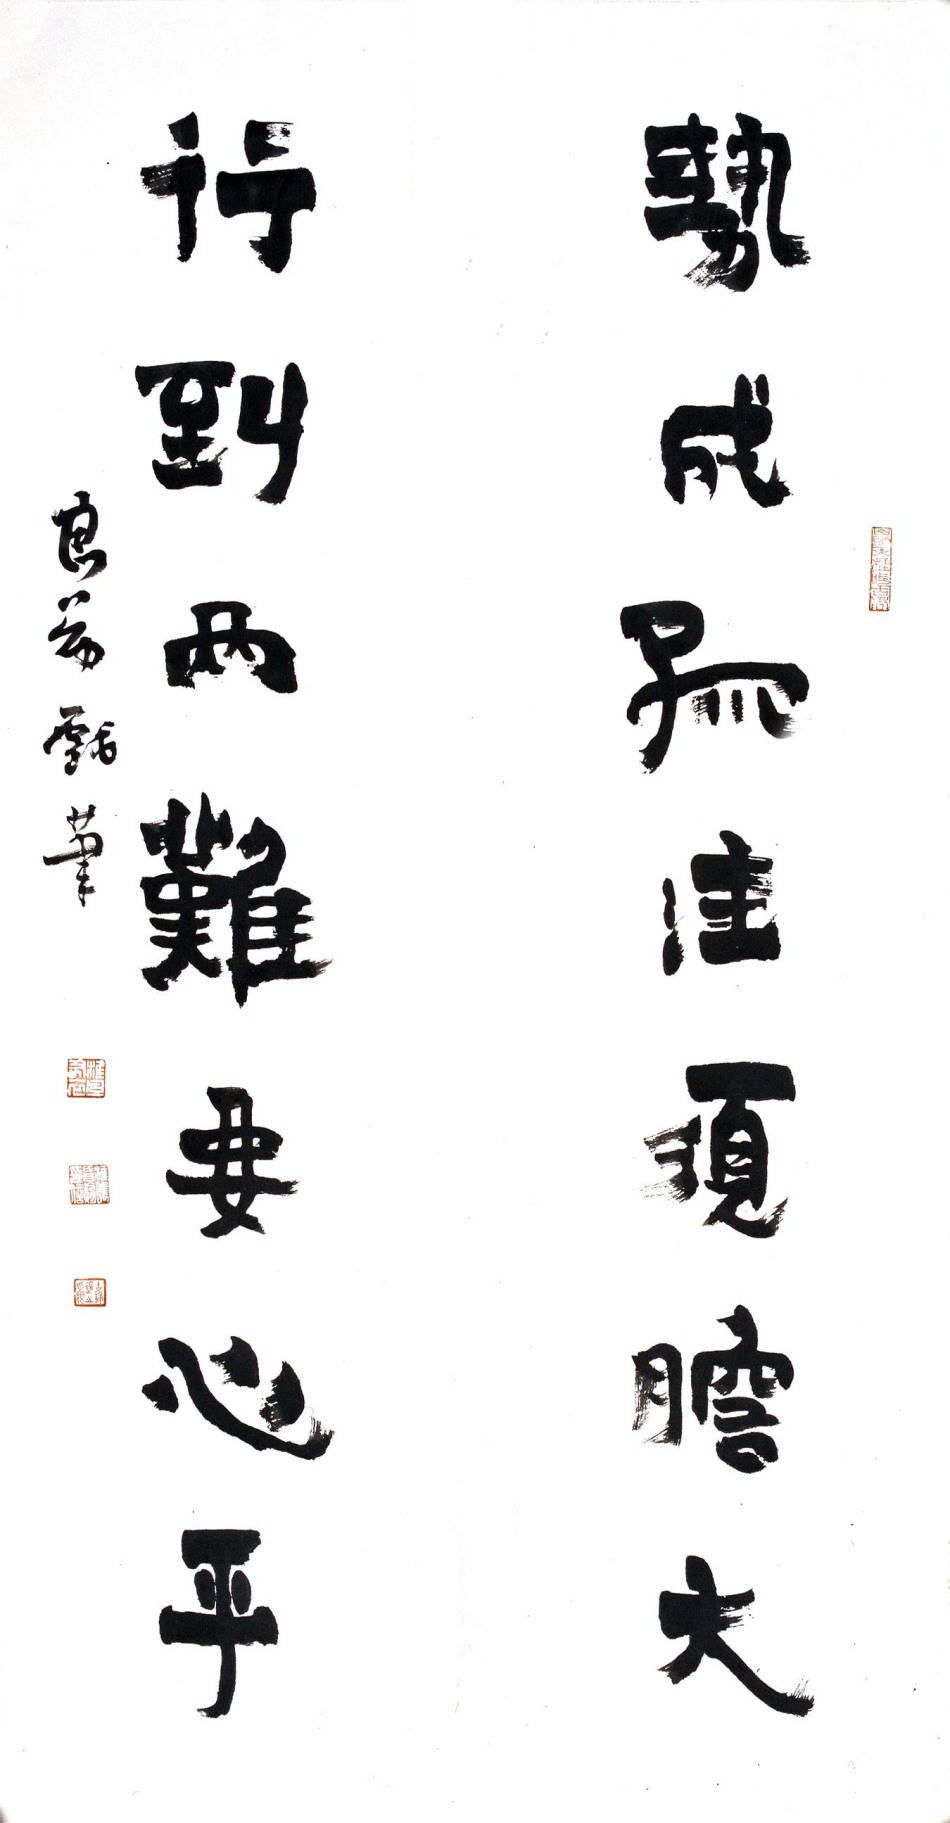 勢成孤注須膽大
行到兩難要心平
良翁戲筆